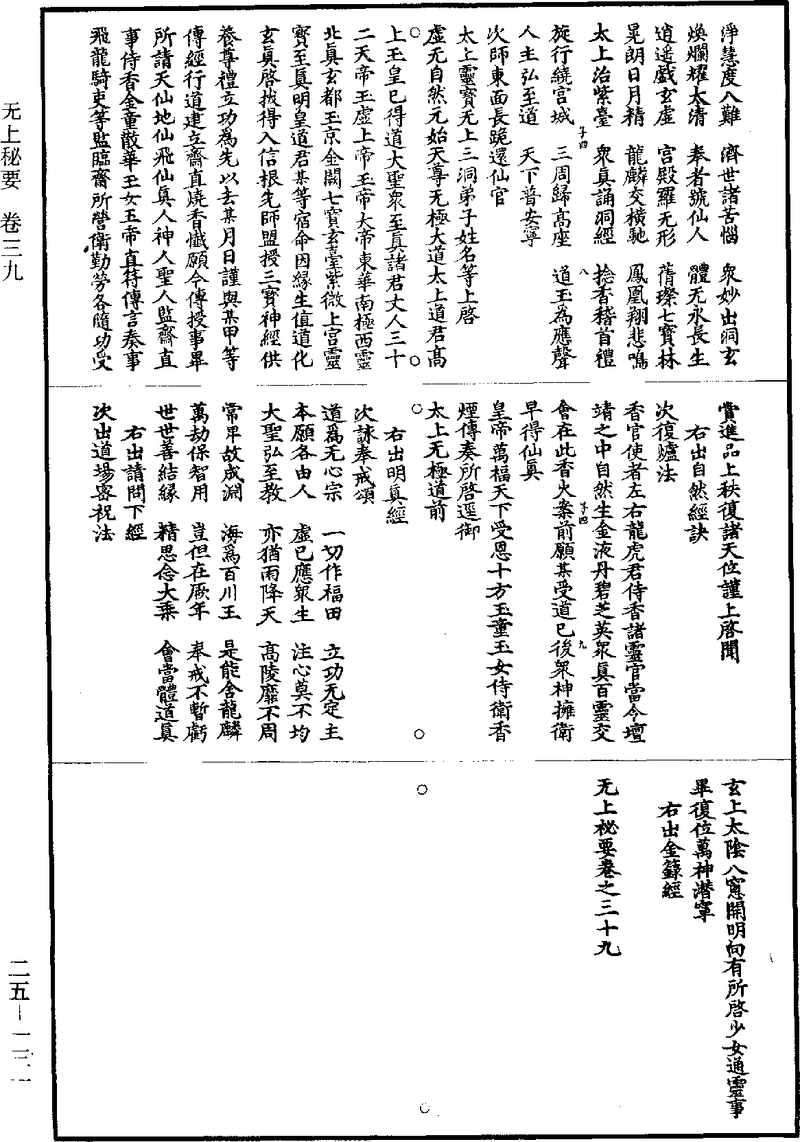 淨慧度八難　濟世諸苦惱　衆妙出洞玄
煥爛耀太清　奉者號仙人　體无永長生
逍遥戲玄虛　宫殿羅无形　蒨璨七寶林
晃朗日月精　龍麟交横馳　鳳凰翔悲鳴
太上治紫臺　衆真誦洞經　捻香稽首禮
旋行繞宫城　三周歸高座　道王為應聲
人主弘至道　天下普安寧
次師東面長跪還仙官
太上靈寶无上三洞弟子姓名等上啓
虛无自然元始天尊无極大道太上道君高
上玉皇已得道大聖衆至真諸君丈人三十
二天帝玉虛上帝玉帝大帝東華南極西靈
北真玄都玉京金闕七寶玄臺紫微上宫靈
寶至真明皇道君某等宿命因縁生值道化
玄真啓拔得入信根先師盟授三寶神經供
養尊禮立功為先以去某月日謹與某甲等
傳經行道建立齋直燒香懺願今傳授事畢
所請天仙地仙飛仙真人神人聖人監齋直
事侍香金童散華玉女五帝直符傳言奏事
飛龍騎吏等監臨齋所營衛勤勞各隨功受
賞進品上秩復諸天位謹上啓聞
右出自然經訣
次復爐法
香官使者左右龍虎君侍香諸靈官當令壇
靖之中自然生金液丹碧芝英衆真百靈交
會在此香火案前願某受道已後衆神擁衛
早得仙真
皇帝萬福天下受恩十方玉童玉女侍衛香
煙傳奏所啓逕御
太上无極道前
右出明真經
次詠奉戒頌
道為无心宗　一切作福田　立功无定主
本願各由人　虛已應衆生　注心莫不均
大聖弘至教　亦猶雨降天　高陵靡不周
常卑故成淵　海為百川王　是能舍龍麟
萬劫保智用　豈但在厥年　奉戒不暫虧
世世善結縁　精思念大乗　會當體道真
右出請問下經
次出道場密祝法
玄上太陰八窓開明向有所啓少女通靈事
畢復位萬神潛寧
右出金籙經
无上秘要卷之三十九
子四
八
子四
九
无上秘要　卷三九
二五―一三一